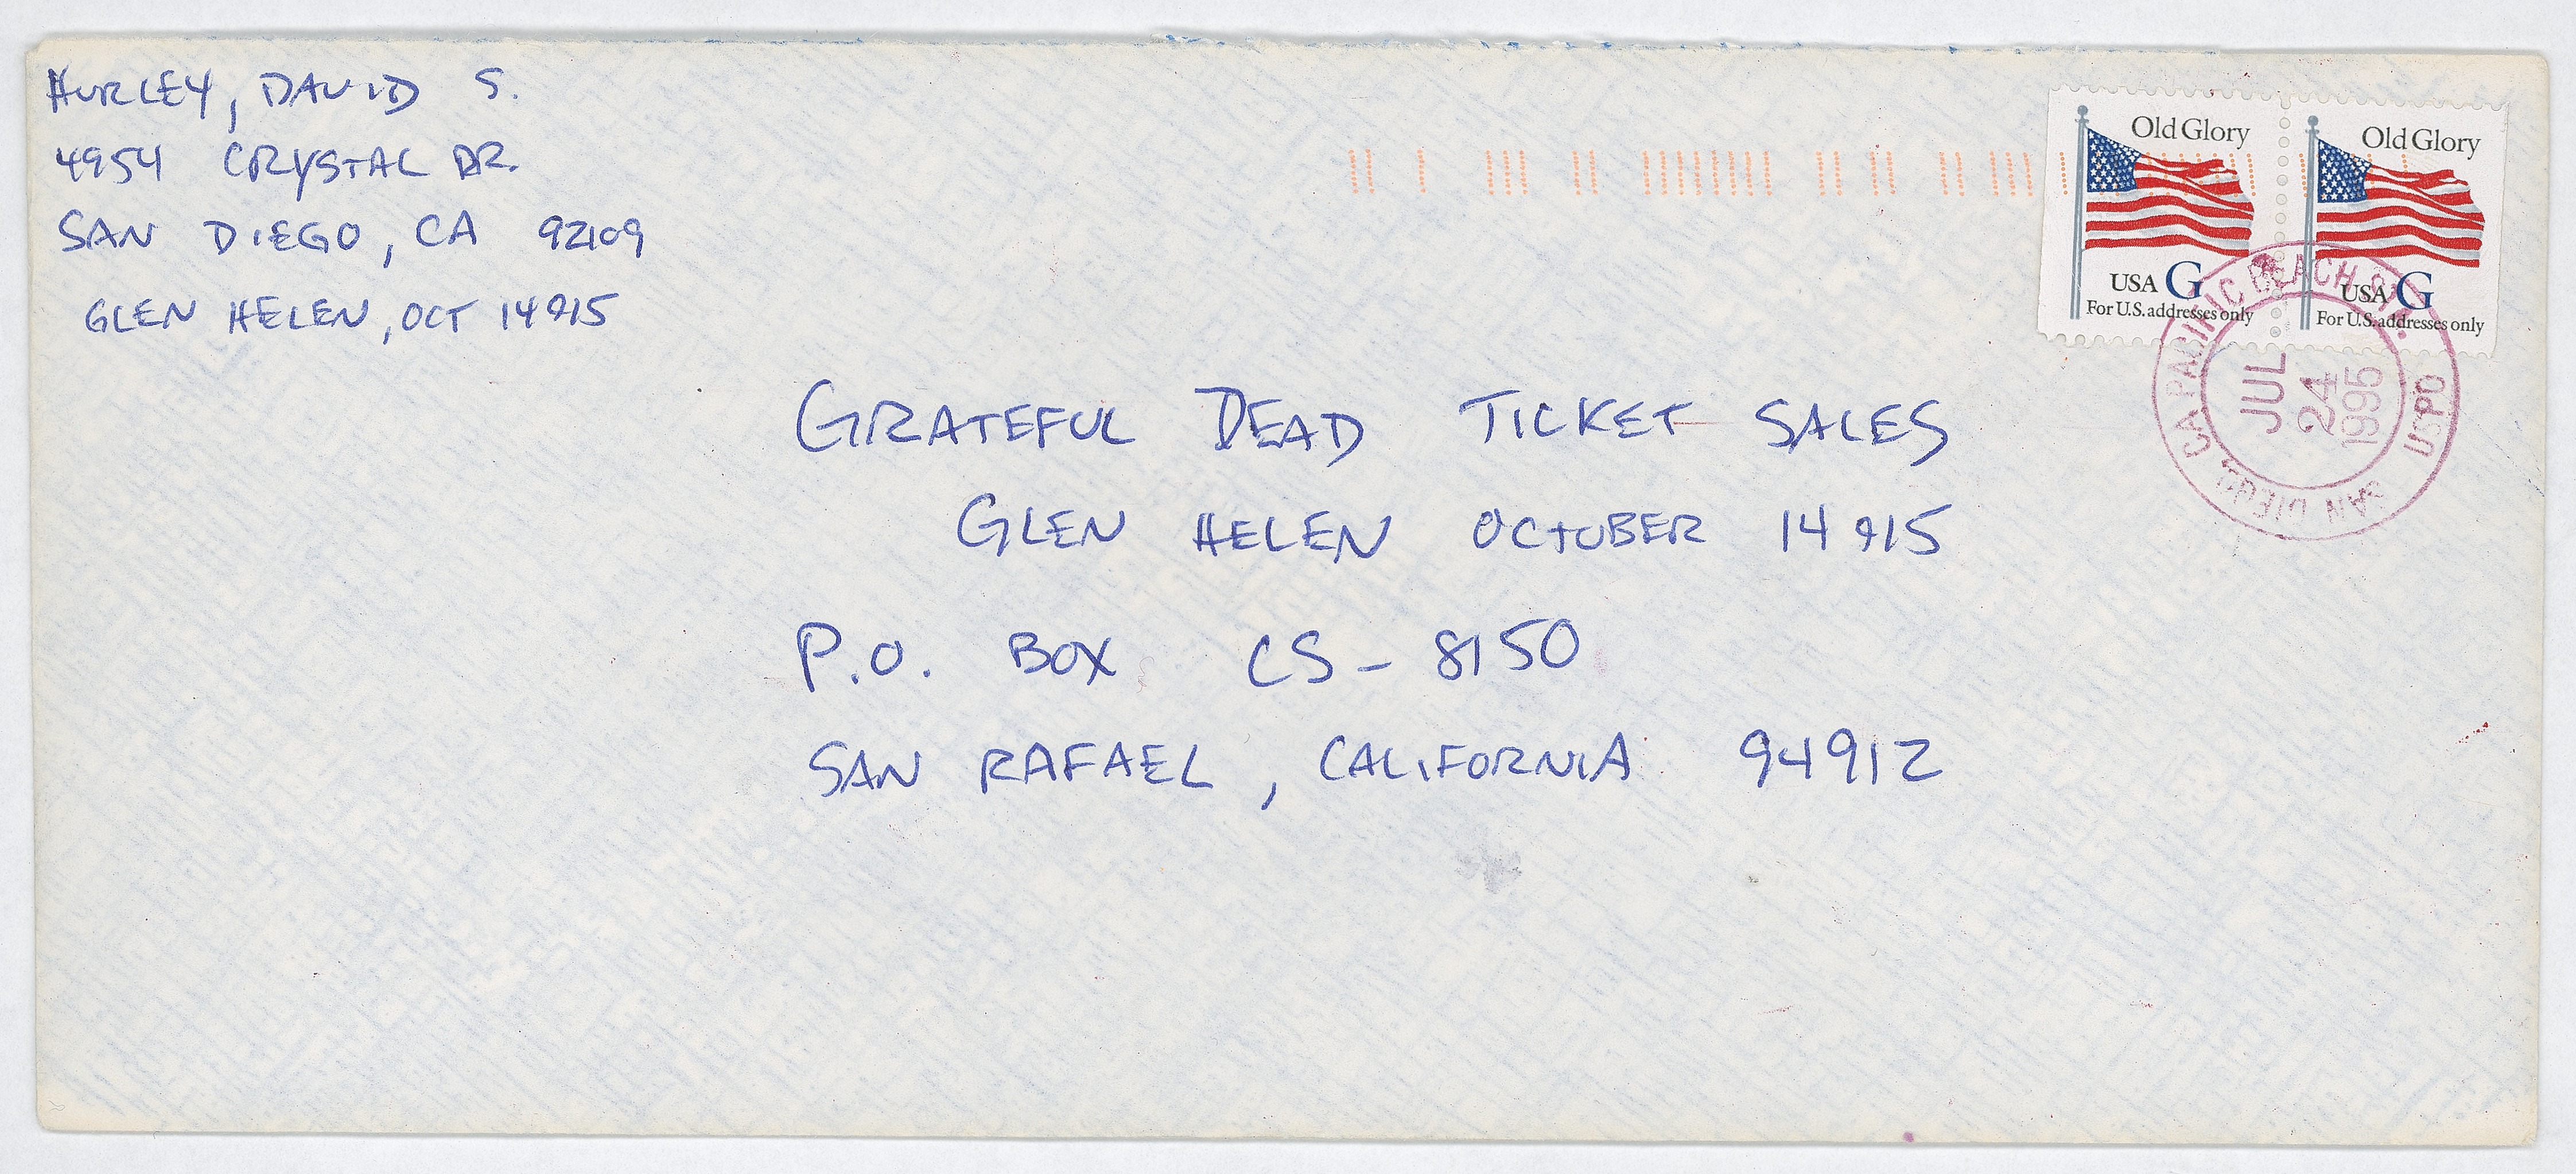 HURLEY, DAVID S.
4954 CRYSTAL DR.
SAN DIEGO, CA 92109
GLEN HELEN, OCT 14 & 15
Old Glory
USA G
For U.S. addresses only
Old Glory
USA G
For U.S. addresses only
SAN DIEGO, CA PACIFIC BEACH STA. USPO
JUL
24
1995
GRATEFUL DEAD TICKET SALES
GLEN HELEN OCTOBER 14 & 15
P.O. BOX CS - 8150
SAN RAFAEL, CALIFORNIA 94912